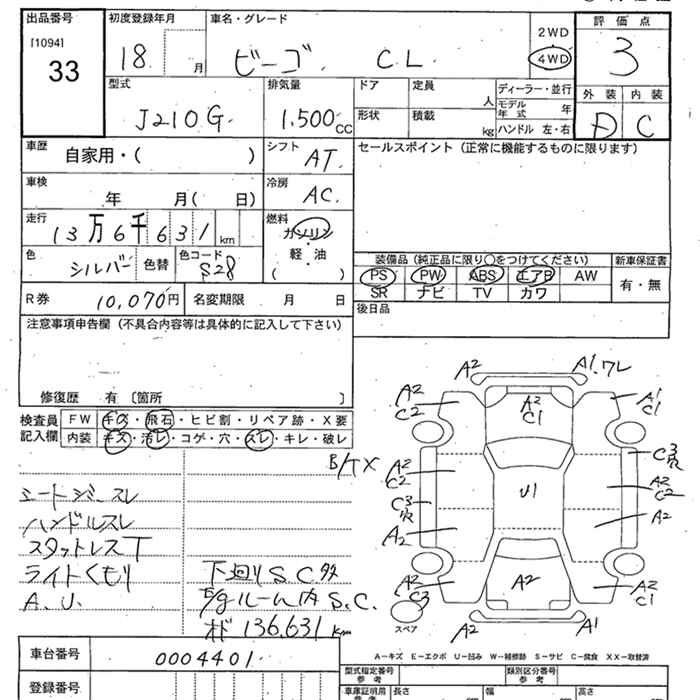 出品番号 初度登録年月 車名・グレード 評価点
[1094]
33
18 月 ビーゴ CL 2WD 4WD 3
型式 排気量 ドア 定員 人 ディーラー・並行 外装 内装
J210G 1.500cc 形状 積載 kg モデル年式 年 D C
ハンドル 左・右
車歴 自家用・( ) シフト AT セールスポイント (正常に機能するものに限ります)
車検 年 月( 日) 冷房 AC
走行 13万6千631km 燃料 ガソリン
軽・油
( )
色 シルバー 色替 色コード S28
装備品 (純正品に限り○をつけてください) 新車保証書
PS PW ABS エアB AW 有・無
SR ナビ TV カワ
R券 10,070円 名変期限 月 日 後日品
注意事項申告欄 (不具合内容等は具体的に記入して下さい)
修復歴 有 〔箇所 〕
検査員記入欄
FW キズ・飛石・ヒビ割・リペア跡・X要
内装 キズ・汚レ・コゲ・穴・スレ・キレ・破レ
シートジミ スレ
ハンドルスレ
スタットレスT
ライトくもり
A.U.
下回りS.C.
E/gルーム内S.C.
オド 136,631km
A2 A1.ワレ
A2 C2 A2 C1 A1 C1
B/TX
A2 C2 C3
U1 A2 C2
C3
A2 A2
A2 C3 A2 A2 C1
スペア
A2 A1
A-キズ E-エクボ U-凹み W-補修跡 S-サビ C-腐食 XX-取替済
車台番号 0004401
型式指定番号 参考 類別区分番号 参考
登録番号
車庫証明用 参考 長さ 幅 高さ